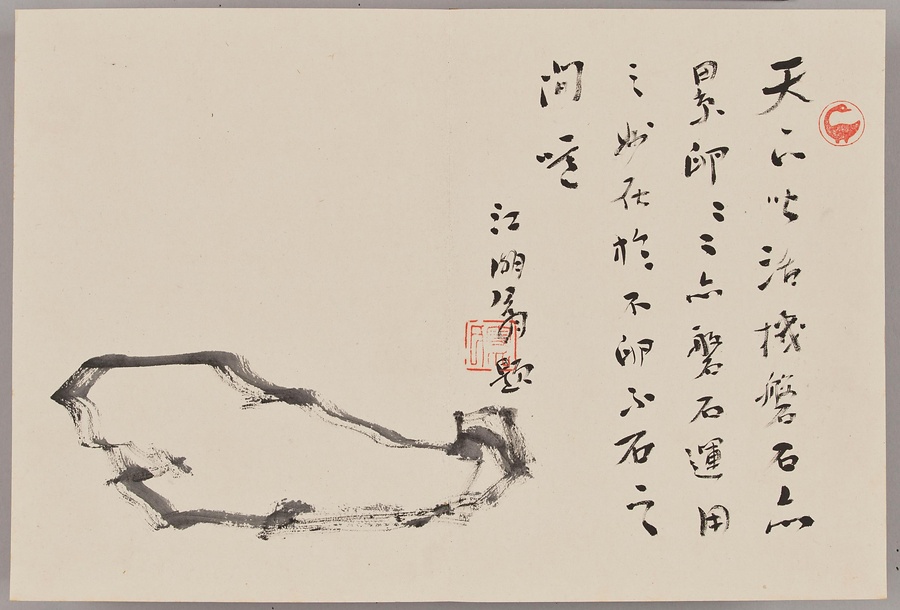 天活機磐石亦
累卵〻〻亦磐石運用
之妙在於不卵不石之
間噫
江湖題